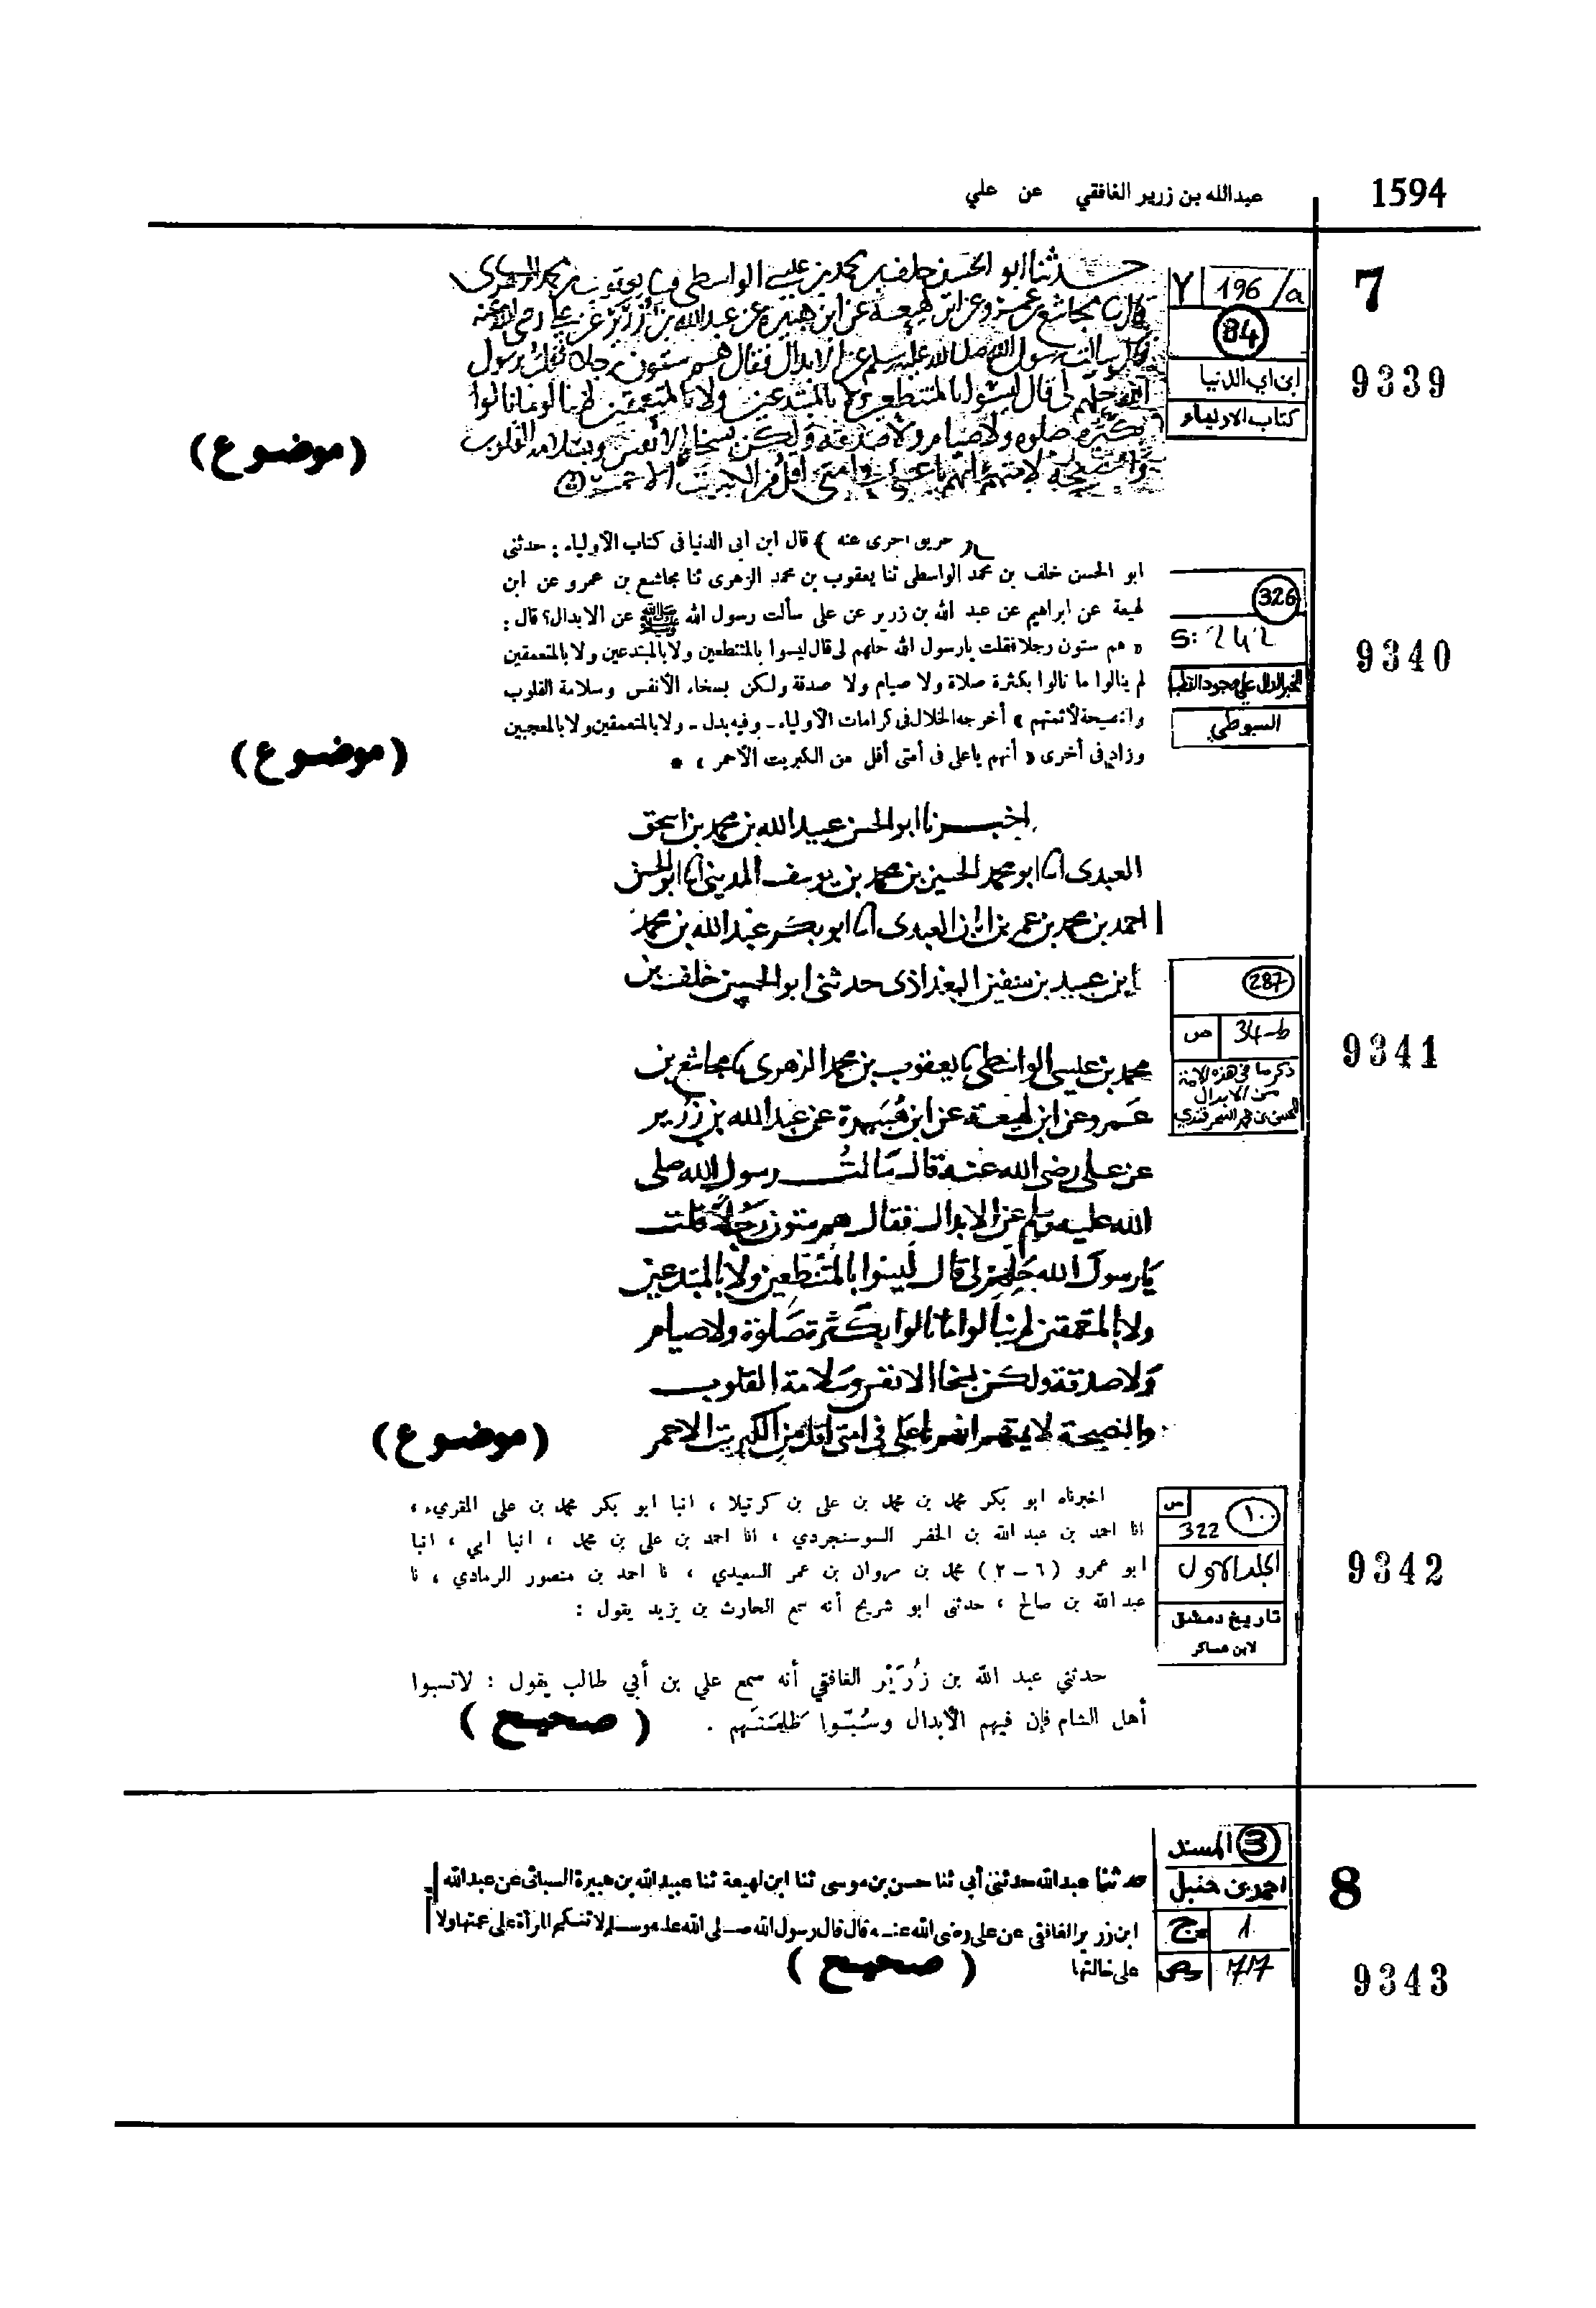 1594
عبدالله بن زرير الغافقي عن علي
7
196/a
84
9339
ابن ابي الدنيا
كتاب الاولياء
حدثنا ابو الحسن خلف بن محمد بن عيسى الواسطي يعقوب بن محمد الزهري
مجاشع بن عمرو عن ابن لهيعة عن ابن هبيرة عن عبد الله بن زرير عن علي رضي الله عنه
قال سالت رسول الله صلى الله عليه وسلم عن الابدال فقال هم ستون رجلا فقلت يرسول
الله حلهم لي قال ليسوا بالمتنطعين ولا بالمبتدعين ولا بالمتعمقين لم ينالوا ما نالوا
بكثرة صلوة ولا صيام ولا صدقة ولكن بسخا الانفس وسلامة القلوب
والنصيحة لايمتهم انهم يا علي في امتي اقل من الكبريت الاحمر
(موضوع)
326
S: 242
9340
الخبر الدال على وجود القطب
السيوطي
﴿ طريق اخرى عنه ﴾ قال ابن ابى الدنيا فى كتاب الأولياء : حدثنى
ابو الحسن خلف بن محمد الواسطى ثنا يعقوب بن محمد الزهرى ثنا مجاشع بن عمرو عن ابن
لهيعة عن ابراهيم عن عبد الله بن زرير عن على سألت رسول الله ﷺ عن الابدال؟ قال :
« هم ستون رجلا فقلت يارسول الله حلهم لى قال ليسوا بالمتنطعين ولا بالمبتدعين ولا بالمتعمقين
لم ينالوا ما نالوا بكثرة صلاة ولا صيام ولا صدقة ولكن بسخاء الأنفس وسلامة القلوب
والنصيحة لأئمتهم » أخرجه الخلال فى كرامات الأولياء ـ وفيه بدل ـ ولا بالمتعمقين ولا بالمعجبين
وزاد فى أخرى « أنهم ياعلى فى أمتى أقل من الكبريت الأحمر » *
(موضوع)
اخبـرنا ابو الحسن عبيد الله بن محمد بن اسحق
العبدى انا ابو محمد الحسين بن محمد بن يوسف المدينى انا ابو الحسن
احمد بن محمد بن عمر بن ابان العبدى انا ابو بكر عبد الله بن محمد
ابن عبيد بن سفين البغداذى حدثنى ابو الحسين خلف بن
287
34-b ص
9341
ذكر ما فى هذه الامة
من الابدال
الحسن بن محمد السمرقندي
محمد بن عيسى الواسطى نا يعقوب بن محمد الزهرى نا مجاشع بن
عمرو عن ابن لهيعة عن ابن هبيرة عن عبد الله بن زرير
عن على رضى الله عنه قال سالت رسول الله صلى
الله عليه وسلم عن الابدال فقال هم ستون رجلا قلت
يا رسول الله حلهم لى قال ليسوا بالمتنطعين ولا بالمبتدعين
ولا بالمتعمقين لم ينالوا ما نالوا بكثرة صلوة ولا صيام
ولا صدقة ولكن بسخا الانفس وسلامة القلوب
والنصيحة لايمتهم انهم يا على فى امتى اقل من الكبريت الاحمر
(موضوع)
١٠٠ ص
322
9342
المجلد الاول
تاريخ دمشق
لابن عساكر
اخبرناه ابو بكر محمد بن محمد بن علي بن كرتيلا ، انبا ابو بكر محمد بن علي المقريء ،
انا احمد بن عبد الله بن الخضر السوسنجردي ، انا احمد بن علي بن محمد ، انبا ابي ، انبا
ابو عمرو ( ٦ – ٢ ) محمد بن مروان بن عمر السعيدي ، نا احمد بن منصور الرمادي ، نا
عبد الله بن صالح ، حدثني ابو شريح أنه سمع الحارث بن يزيد يقول :
حدثني عبد الله بن زُرَيْر الغافقي أنه سمع علي بن أبي طالب يقول : لاتسبوا
أهل الشام فإن فيهم الأبدال وسُبّوا ظَلَمَتَهم .
( صحيح )
8
3 المسند
احمد بن حنبل
ج 1
ص 717
9343
حدثنا عبدالله حدثنى أبى ثنا حسن بن موسى ثنا ابن لهيعة ثنا عبيدالله بن هبيرة السبائى عن عبدالله
ابن زرير الغافقى عن على رضى الله عنه قال قال رسول الله صلى الله عليه وسلم لا تنكح المرأة على عمتها ولا
على خالتها
( صحيح )